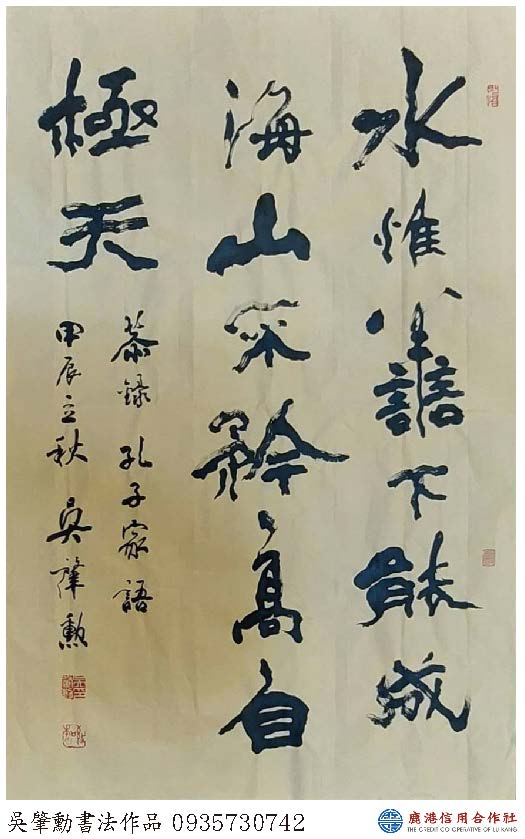 水惟善下能成
海山不矜高自
極天
恭錄孔子家語
甲辰立秋 吳肇勳
吳肇勳書法作品 0935730742
鹿港信用合作社
THE CREDIT CO OPERATIVE OF LU KANG